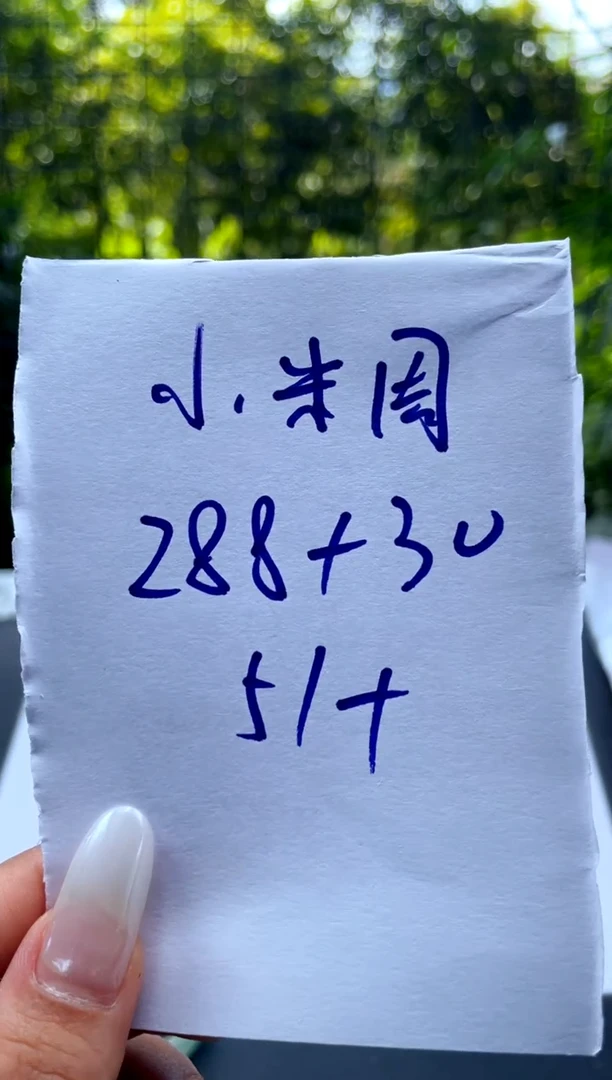 小米周
288+30
51+